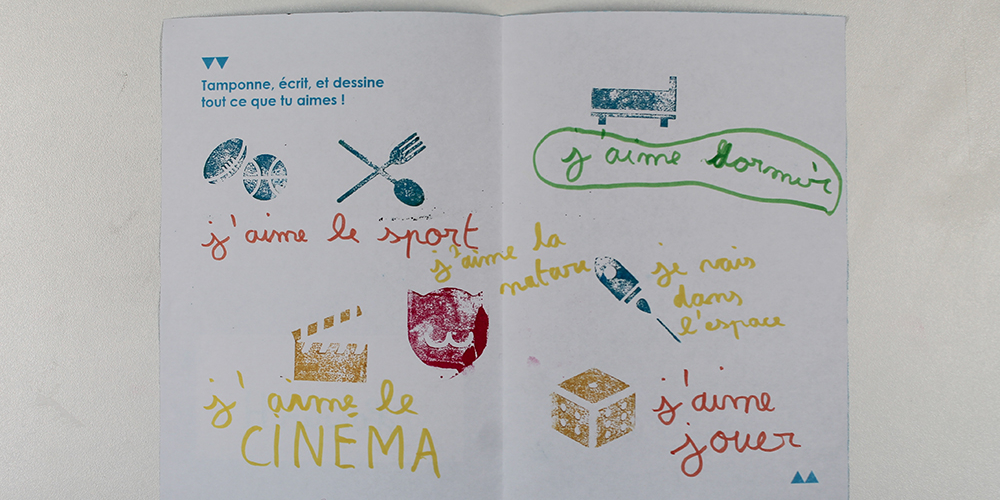 Tamponne, écrit, et dessine
tout ce que tu aimes !
j'aime le sport
j'aime la
nature
j'aime le
CINÉMA
j'aime dormir
je vais
dans
l'espace
j'aime
jouer